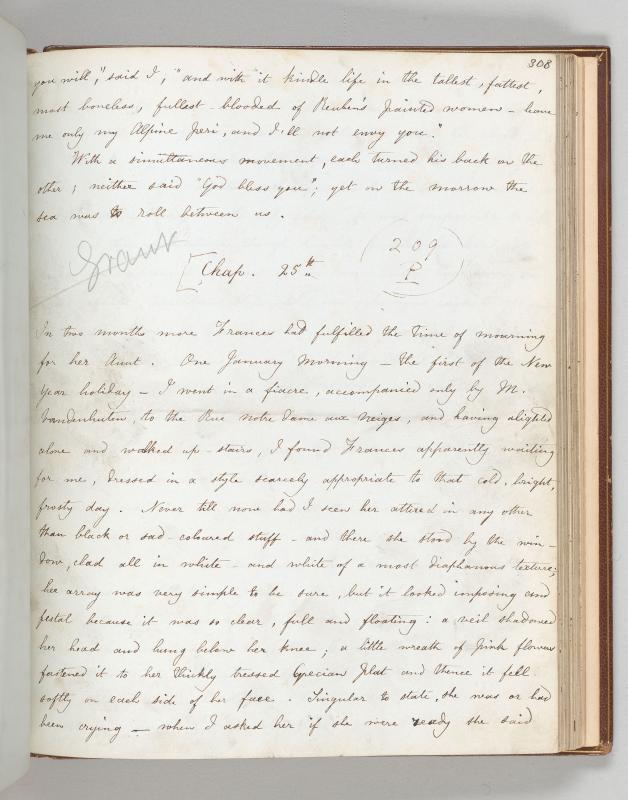 308
you will," said I, "and with it kindle life in the tallest, fattest,
most boneless, fullest-blooded of Reuben's painted women - leave
me only my Alpine Peri, and I'll not envy you."
With a simultaneous movement, each turned his back on the
other; neither said "God bless you"; yet on the morrow the
sea was to roll between us.
Grant
[Chap. 25th
209
P
In two months more Frances had fulfilled the time of mourning
for her Aunt. One January morning - the first of the New
Year holiday - I went in a fiacre, accompanied only by M.
Vandenhuten, to the Rue notre Dame aux neiges, and having alighted
alone and walked up-stairs, I found Frances apparently waiting
for me, dressed in a style scarcely appropriate to that cold, bright,
frosty day. Never till now had I seen her attired in any other
than black or sad-coloured stuff - and there she stood by the win-
dow, clad all in white - and white of a most diaphanous texture;
her array was very simple to be sure, but it looked imposing and
festal because it was so clear, full and floating: a veil shadowed
her head and hung below her knee; a little wreath of pink flowers
fastened it to her thickly tressed Grecian plat and thence it fell
softly on each side of her face. Singular to state, she was or had
been crying - when I asked her if she were ready she said